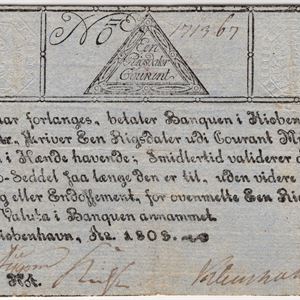 No 171367
Een
Rigsdaler
Courant
aar forlanges, betaler Banquen i Kioben
skriver Een Rigsdaler udi Courant M
i Hænde havende; Imidlertid validerer
Seddel saa længe den er til, uden videre
g eller Endossement, for ovenmelte Een Ri
Valuta i Banquen annammet.
Kiobenhavn, Ao. 1808.